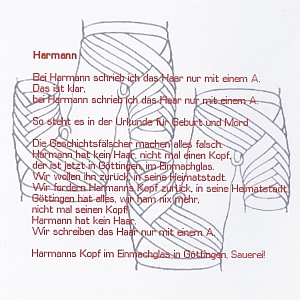 Harmann
Bei Harmann schrieb ich das Haar nur mit einem A.
Das ist klar,
bei Harmann schrieb ich das Haar nur mit einem A.
So steht es in der Urkunde für Geburt und Mord
Die Geschichtsfälscher machen alles falsch.
Harmann hat kein Haar, nicht mal einen Kopf,
der ist jetzt in Göttingen, im Einmachglas.
Wir wollen ihn zurück, in seine Heimatstadt.
Wir fordern Harmanns Kopf zurück, in seine Heimatstadt
Göttingen hat alles, wir ham nix mehr,
nicht mal seinen Kopf!
Harmann hat kein Haar.
Wir schreiben das Haar nur mit einem A.
Harmanns Kopf im Einmachglas in Göttingen, Sauerei!